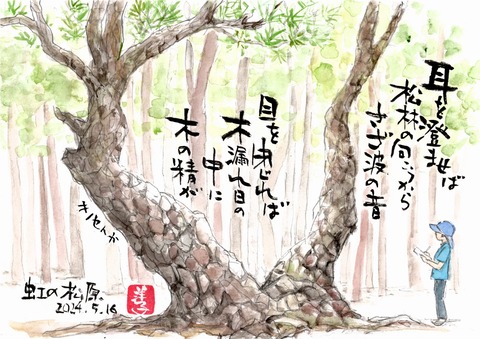 耳を澄ませば
松林の向こうから
さざ波の音
目を閉じれば
木漏れ日の
中に
木の精が
虹の松原。
2024.5.16